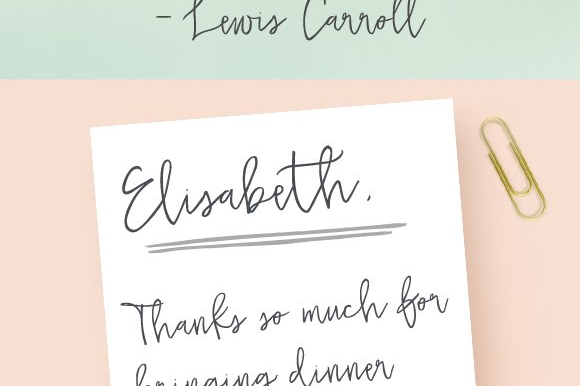 - Lewis Carroll
Elisabeth,
Thanks so much for
bringing dinner